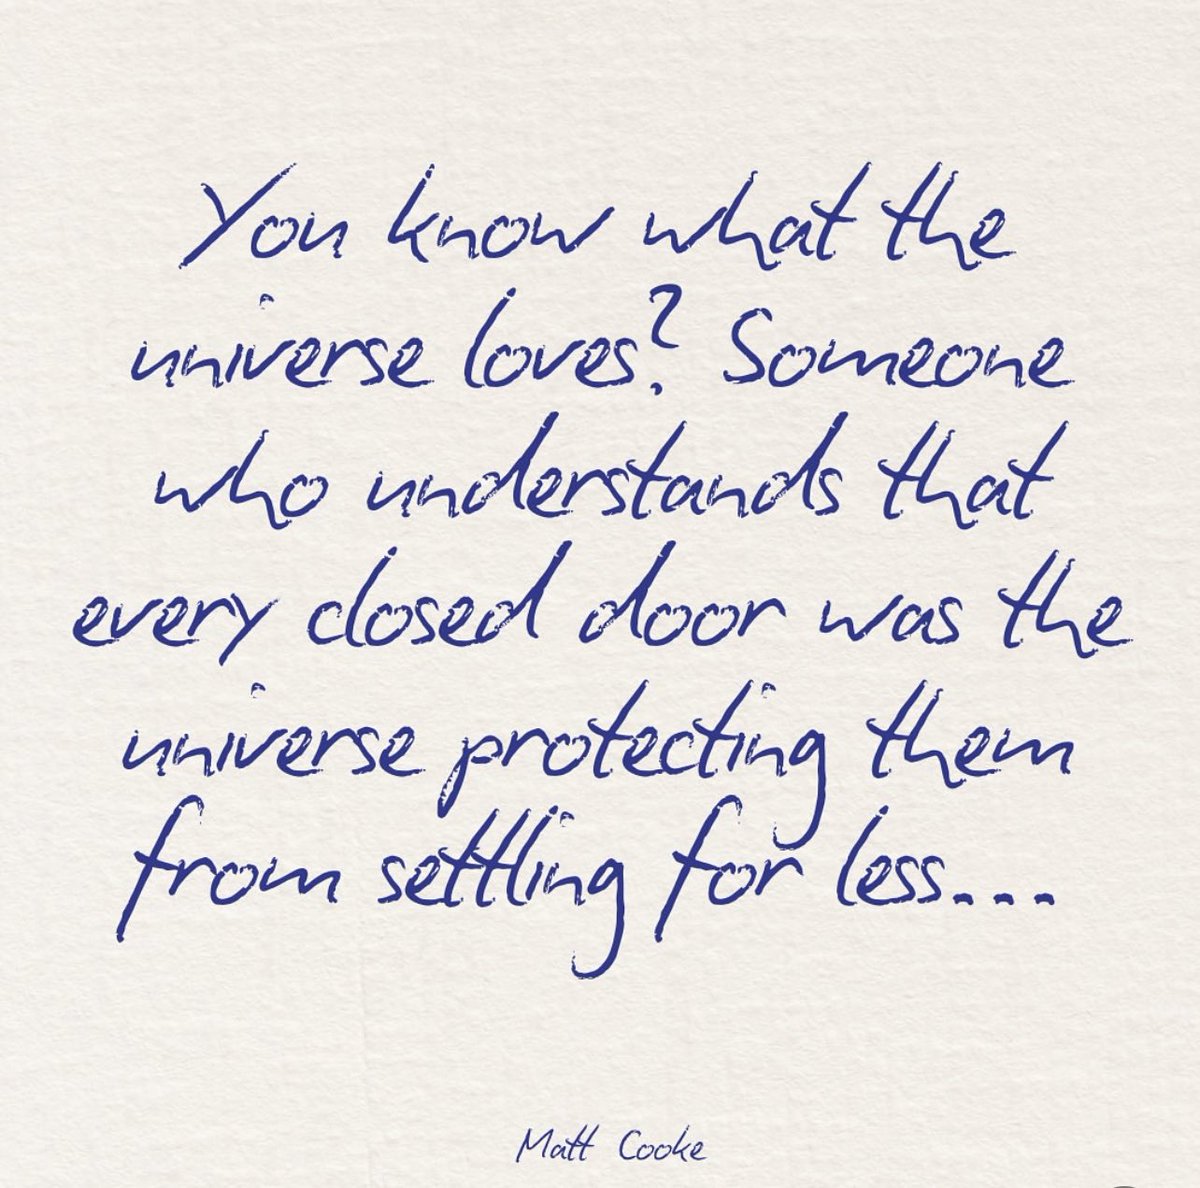 You know what the
universe loves? Someone
who understands that
every closed door was the
universe protecting them
from settling for less...
Matt Cooke